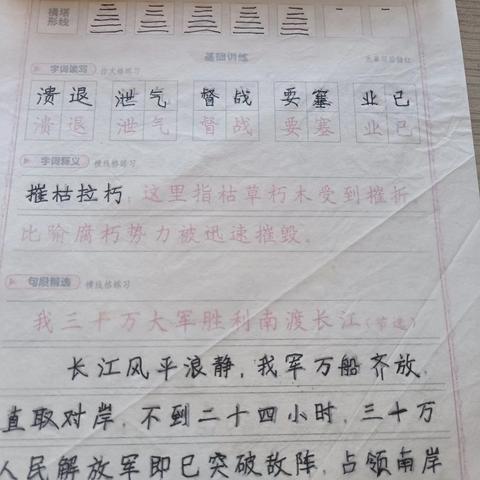 横塔
形线
基础训练
字词读写 仿大格练习
溃退 泄气 督战 要塞 业已
溃退 泄气 督战 要塞 业已
字词释义 横线格练习
摧枯拉朽:这里指枯草朽木受到摧折
比喻腐朽势力被迅速摧毁。
句段精选 横线格练习
我三十万大军胜利南渡长江(节选)
长江风平浪静,我军万船齐放,
直取对岸,不到二十四小时,三十万
人民解放军即已突破敌阵,占领南岸